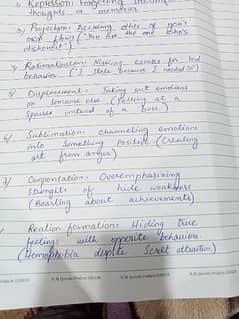 Repression: Forgetting
thoughts or memories
Projection: Accusing others of your
own flaws ("You are the one who's
dishonest")
Rationalization: Making excuses for bad
behavior. ("I stole because I needed it")
Displacement: Taking out emotions
on someone else (Yelling at a
spouse instead of a boss.)
6 Sublimation: channeling emotions
into something positive (Creating
art from anger)
7 Overemphasizing
strengths to hide weakness
(Boasting about achievements)
Reation formation: Hiding true
feelings with opposite behaviour
(Homophobia despite Scret attraction)